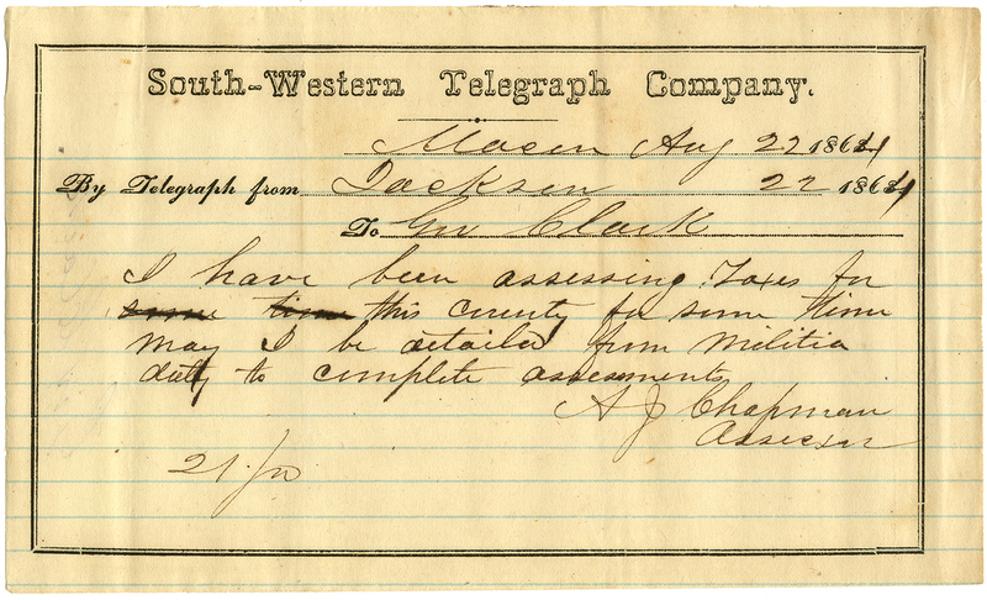 South-Western Telegraph Company.
Macon Aug 22 1864
By Telegraph from Jackson 22 1864
To Gov Clark
I have been assessing Taxes for
some time this county for some time
may I be detailed from Militia
duty to complete assesments
A J Chapman
Assessor